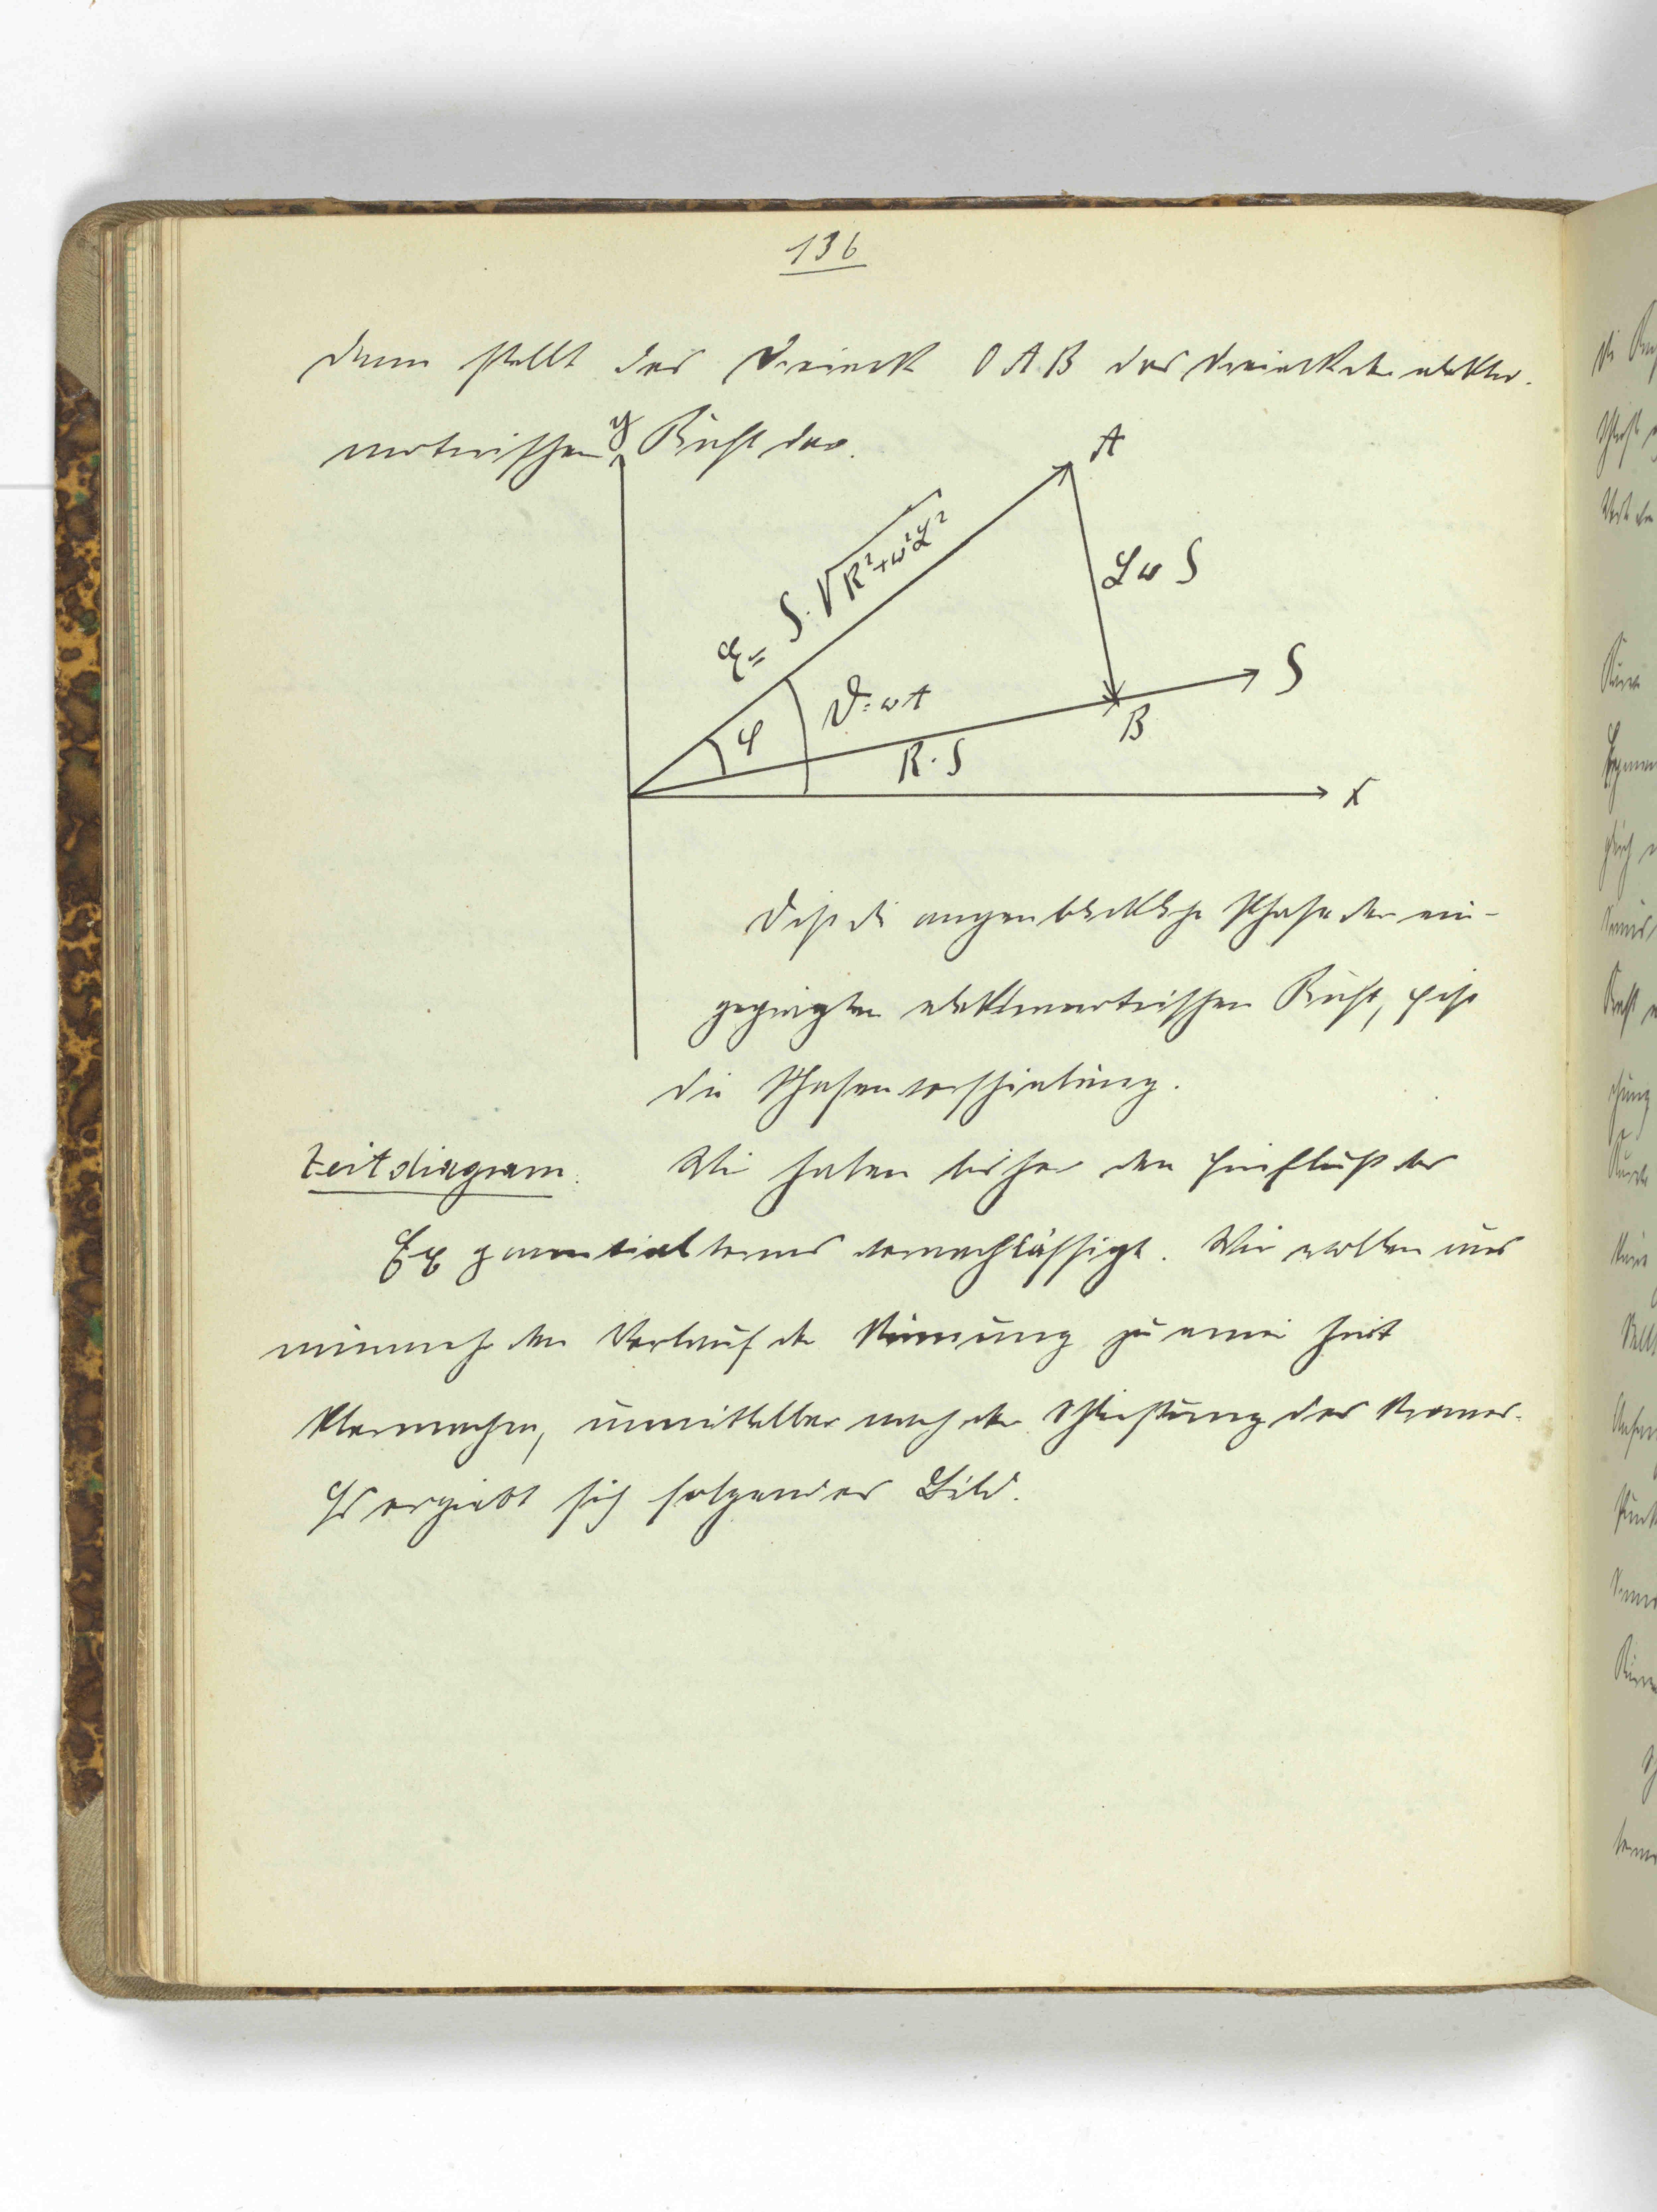 136
dann stellt das Dreieck O A B das Dreieck der elektro-
motorischen Kraft dar.
y
A
E = J · √R²+ω²L²
L ω J
J
ϑ = ωt
φ
B
R · J
x
ϑ ist die augenblickliche Phase der ein-
geprägten elektromotorischen Kraft, φ ist
die Phasenverschiebung.
Zeitdiagram. Wir haben bisher den Einfluß des
Exponentialterms vernachlässigt. Wir wollen uns
nunmehr den Verlauf der Strömung zu einer Zeit
klarmachen, unmittelbar nach der Schließung des Stromes.
Es ergiebt sich folgendes Bild.